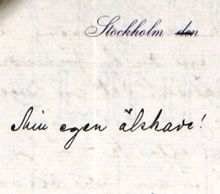 Stockholm den
Min egen älskade!